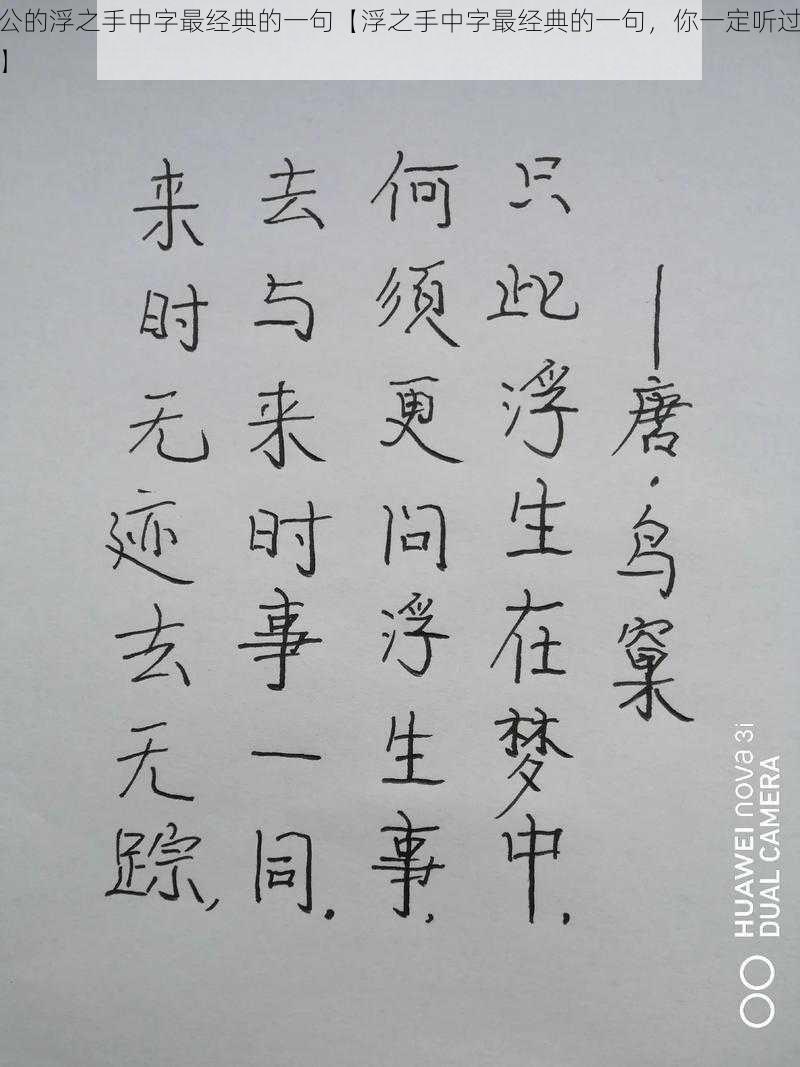 公的浮之手中字最经典的一句【浮之手中字最经典的一句，你一定听过
】
来时无迹去无踪，
去与来时事一同。
何须更问浮生事，
只此浮生在梦中．
—唐·鸟窠
HUAWEI nova 3i
DUAL CAMERA